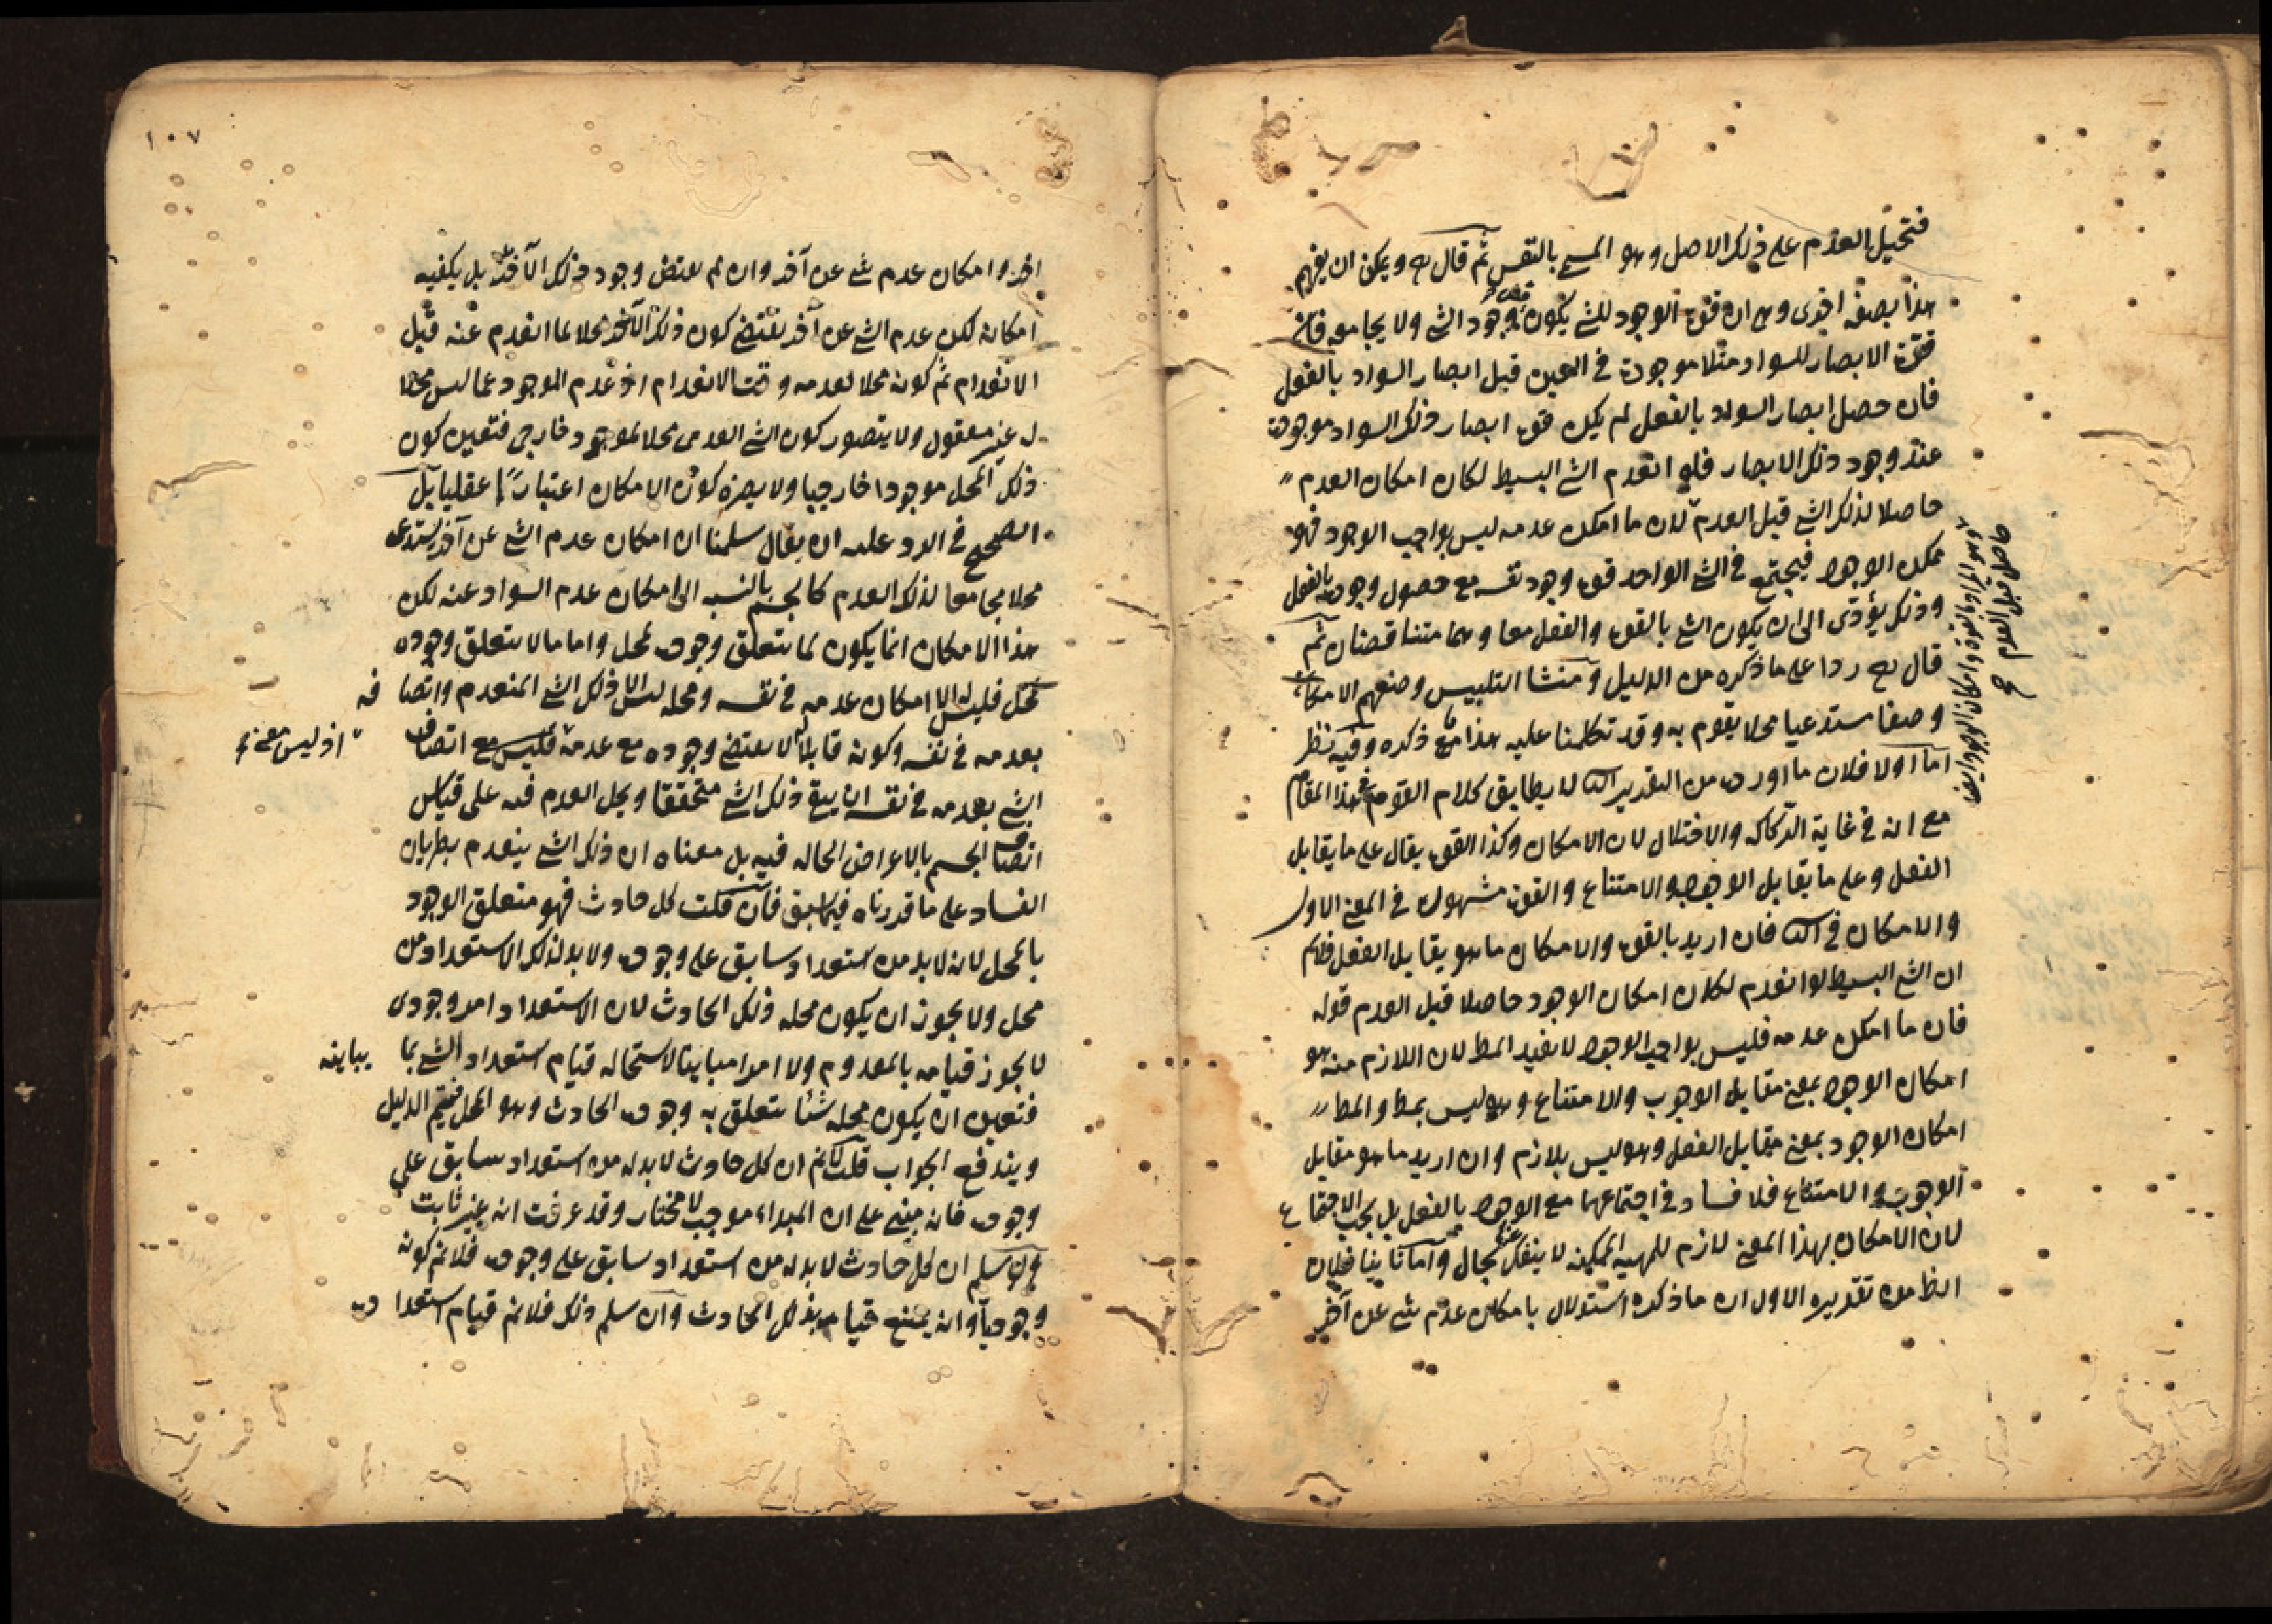 فتحيل العدم على ذلك الاصل وهو المسمى بالنفس ثم قال له ويمكن ان يفهم
هذا بصيغة اخرى وهي ان قوة الوجود للشيء يكون قبل وجود الشيء ولا يجامعه فان
قوة الابصار للسواد مثلا موجودة في العين قبل ابصار السواد بالفعل
فان حصل ابصار السواد بالفعل لم يكن قوة ابصار ذلك السواد موجودة
عند وجود ذلك الابصار فلو انعدم الشيء البسيط لكان امكان العدم
حاصلا لذلك الشيء قبل العدم لان ما امكن عدمه ليس بواجب الوجود فهو
ممكن الوجود فيجتمع في الشيء الواحد قوة وجود نفسه مع حصول وجوده بالفعل
وذلك يؤدى الى ان يكون الشيء بالقوة والفعل معا وهما متناقضان ثم
قال له ردا على ما ذكره من الدليل ومنشا التلبيس وضعهم الامكان
وصفا مستدعيا محلا يقوم به وقد تكلمنا عليه هذا ما ذكره وفيه نظر
اما اولا فلان ما اورده من التقدير الثاني لا يطابق كلام القوم في هذا المقام
مع انه في غاية الركاكه والاختلال لان الامكان وكذا القوة يقال على ما يقابل
الفعل وعلى ما يقابل الوجوب والامتناع والقوة مشهورة في المعنى الاول
والامكان في الثاني فان اريد بالقوة والامكان ما هو يقابل الفعل فلانم
ان الشيء البسيط لو انعدم لكان امكان الوجود حاصلا قبل العدم قوله
فان ما امكن عدمه فليس بواجب الوجود لا يفيد المط لان اللازم منه هو
امكان الوجود بمعنى مقابل الوجوب والامتناع وهو ليس بمط والمط
امكان الوجود بمعنى مقابل الفعل وهو ليس بلازم وان اريد ما هو مقابل
الوجوب والامتناع فلا فساد في اجتماعهما مع الوجود بالفعل بل يجب الاجتماع
لان الامكان بهذا المعنى لازم للمهيه الممكنه لا ينفك عنها بحال واما ثانيا فلان
الظ من تقديره الاول ان ما ذكره استدلال بامكان عدم شيء عن آخر
وهو المراد بالقوة وامكان الوجود ايضا
حاصل قبل العدم صح
١٠٧
اخر وامكان عدم شيء عن آخر وان لم يقتض وجود ذلك الآخر بل يكفيه
امكانه لكن عدم الشيء عن آخر يقتضى كون ذلك الآخر محلا لما انعدم عنه قبل
الانعدام ثم كونه محلا لعدمه وقت الانعدام اذ عدم الموجود عما ليس محلا
له غير معقول ولا يتصور كون الشيء العدمى محلا لموجود خارجى فتعين كون
ذلك المحل موجودا خارجيا ولا يضره كون الامكان اعتباريا عقليا بل
الصحيح في الرد عليه ان يقال سلمنا ان امكان عدم الشيء عن آخر يستدعى
محلا مجامعا لذلك العدم كالجسم بالنسبه الى امكان عدم السواد عنه لكن
هذا الامكان انما يكون لما يتعلق وجوده بمحل واما ما لا يتعلق وجوده
بمحل فليس الا امكان عدمه في نفسه ومحله ليس الا ذلك الشيء المنعدم واتصافه
بعدمه في نفسه وكونه قابلا له لا يقتضى وجوده مع عدمه فليس مع اتصاف
اذ ليس معنى
الشيء بعدمه في نفسه ان يبقى ذلك الشيء متحققا ويحل العدم فيه على قياس
اتصاف الجسم بالاعراض الحاله فيه بل معناه ان ذلك الشيء ينعدم بطريان
الفساد على ما قررناه فيما سبق فان قلت كل حادث فهو متعلق الوجود
بالمحل لانه لا بد من استعداد سابق على وجوده ولا بد لذلك الاستعداد من
محل ولا يجوز ان يكون محله ذلك الحادث لان الاستعداد امر وجودى
لا يجوز قيامه بالمعدوم ولا امرا مباينا لاستحاله قيام استعداد الشيء بما يباينه
فتعين ان يكون محله شيئا يتعلق به وجود الحادث وهو المحل فيتم الدليل
ويندفع الجواب قلت لانم ان كل حادث لا بد له من استعداد سابق على
وجوده فانه مبنى على ان المبداء موجب لا مختار وقد عرفت انه غير ثابت
ولو سلم ان كل حادث لا بد له من استعداد سابق على وجوده فلانم كونه
وجوديا وانه يمتنع قيامه بذلك الحادث وان سلم ذلك فلانم قيام استعداده